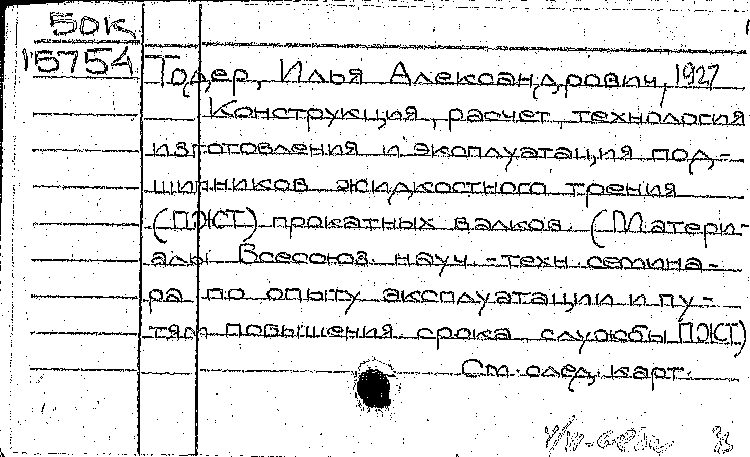 50к
15754
Тодер, Илья Александрович, 1927
Конструкция, расчет, технология
изготовления и эксплуатация под-
шипников жидкостного трения
(ПЖТ) прокатных валков. (Матери-
алы Всесоюз. науч.-техн. семина-
ра по опыту эксплуатации и пу-
тям повышения срока службы ПЖТ)
См. след. карт.